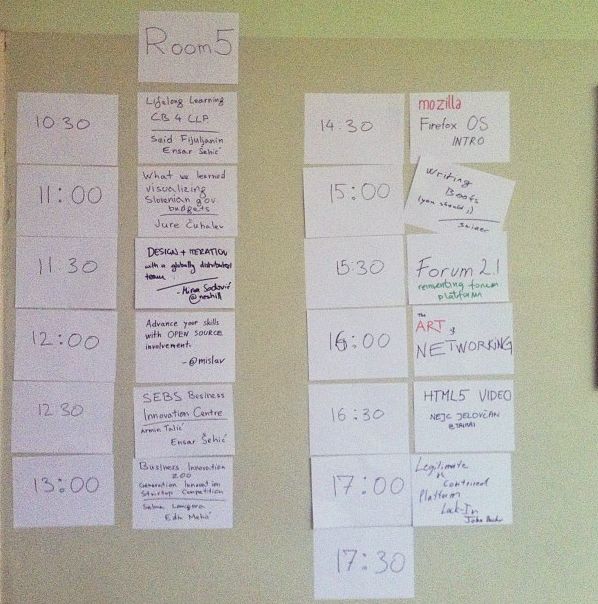 Room 5
10:30
Lifelong Learning
CB 4 CLP
Said Fijuljanin
Ensar Šehić
11:00
What we learned
visualizing
Slovenian gov.
budgets
Jure Čuhalev
11:30
DESIGN + ITERATION
with a globally distributed
team
@neshill
12:00
Advance your skills
with OPEN SOURCE
involvement.
- @mislav
12:30
SEBS Business
Innovation Centre
Armin Talić
Ensar Šehić
13:00
Business Innovation
Generation Innovation
Startup Competition
14:30
mozilla
Firefox OS
INTRO
15:00
Writing
Books
(you should ;)
15:30
Forum 2.1
reinventing forum
platform
16:00
The
ART of
NETWORKING
16:30
HTML5 VIDEO
NEJC JELOVČAN
17:00
Legitimate
Platform
Lock-In
17:30